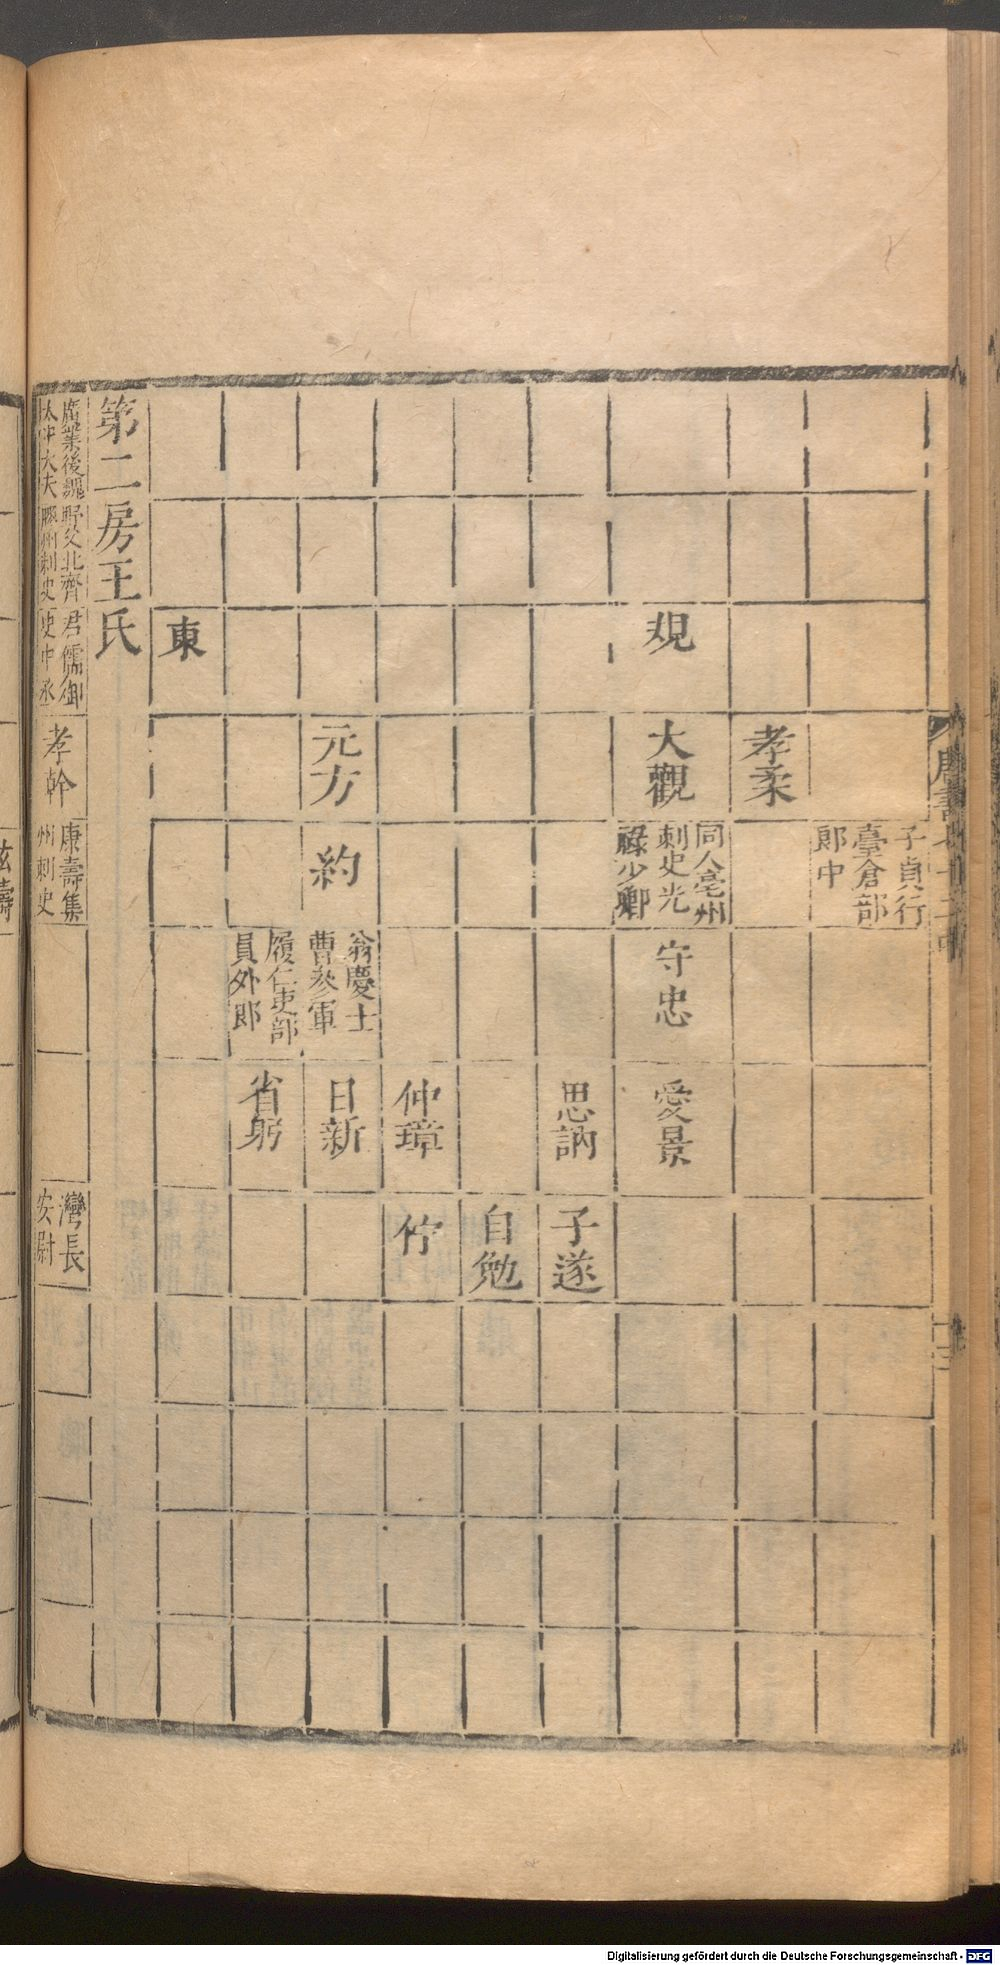 子貞行
臺倉部
郎中
孝柔
規
大觀
同人亳州
刺史光
祿少卿
守忠
愛景
思訥
子遂
自勉
仲璋
竹
元方
約
翁慶士
曹參軍
日新
履仁吏部
員外郎
省躬
東
第二房王氏
廣業後魏
太中大夫
野父北齊
膠州刺史
君儒御
史中丞
孝幹
康壽集
州刺史
灣長
安尉
Digitalisierung gefördert durch die Deutsche Forschungsgemeinschaft - DFG